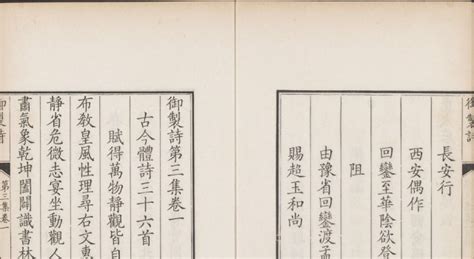 御製詩
長安行
西安偶作
回鑾至華陰欲
阻
由豫省回鑾渡孟
賜超玉和尚
御製詩第三集卷一
古今體詩三十六首
賦得萬物靜觀皆自
布敎皇風性理尋右文
靜省危微志宴坐動觀人
肅氣象乾坤闔闢識書林
御製詩 第三集卷一